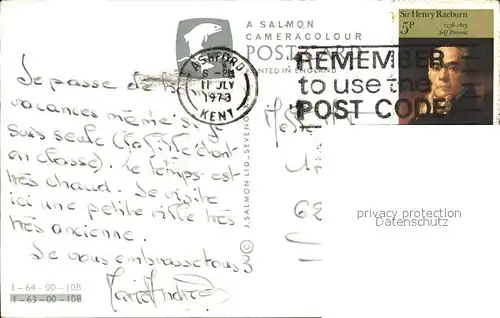 A SALMON
CAMERACOLOUR
POSTCARD
PRINTED IN ENGLAND
ASHFORD
6-PM
11 JLY
1973
KENT
Sir Henry Raeburn
1756-1823
Self Portrait
5P
REMEMBER
to use the
POST CODE
© J. SALMON LTD., SEVENOAKS
Je passe de
vacances même si je
suis seule (la fille étant
en classe). Le temps est
très chaud. Je visite
ici une petite ville très
très ancienne.
Je vous embrasse tous 3
1-64-00-10B
1-63-00-10B
privacy protection
Datenschutz